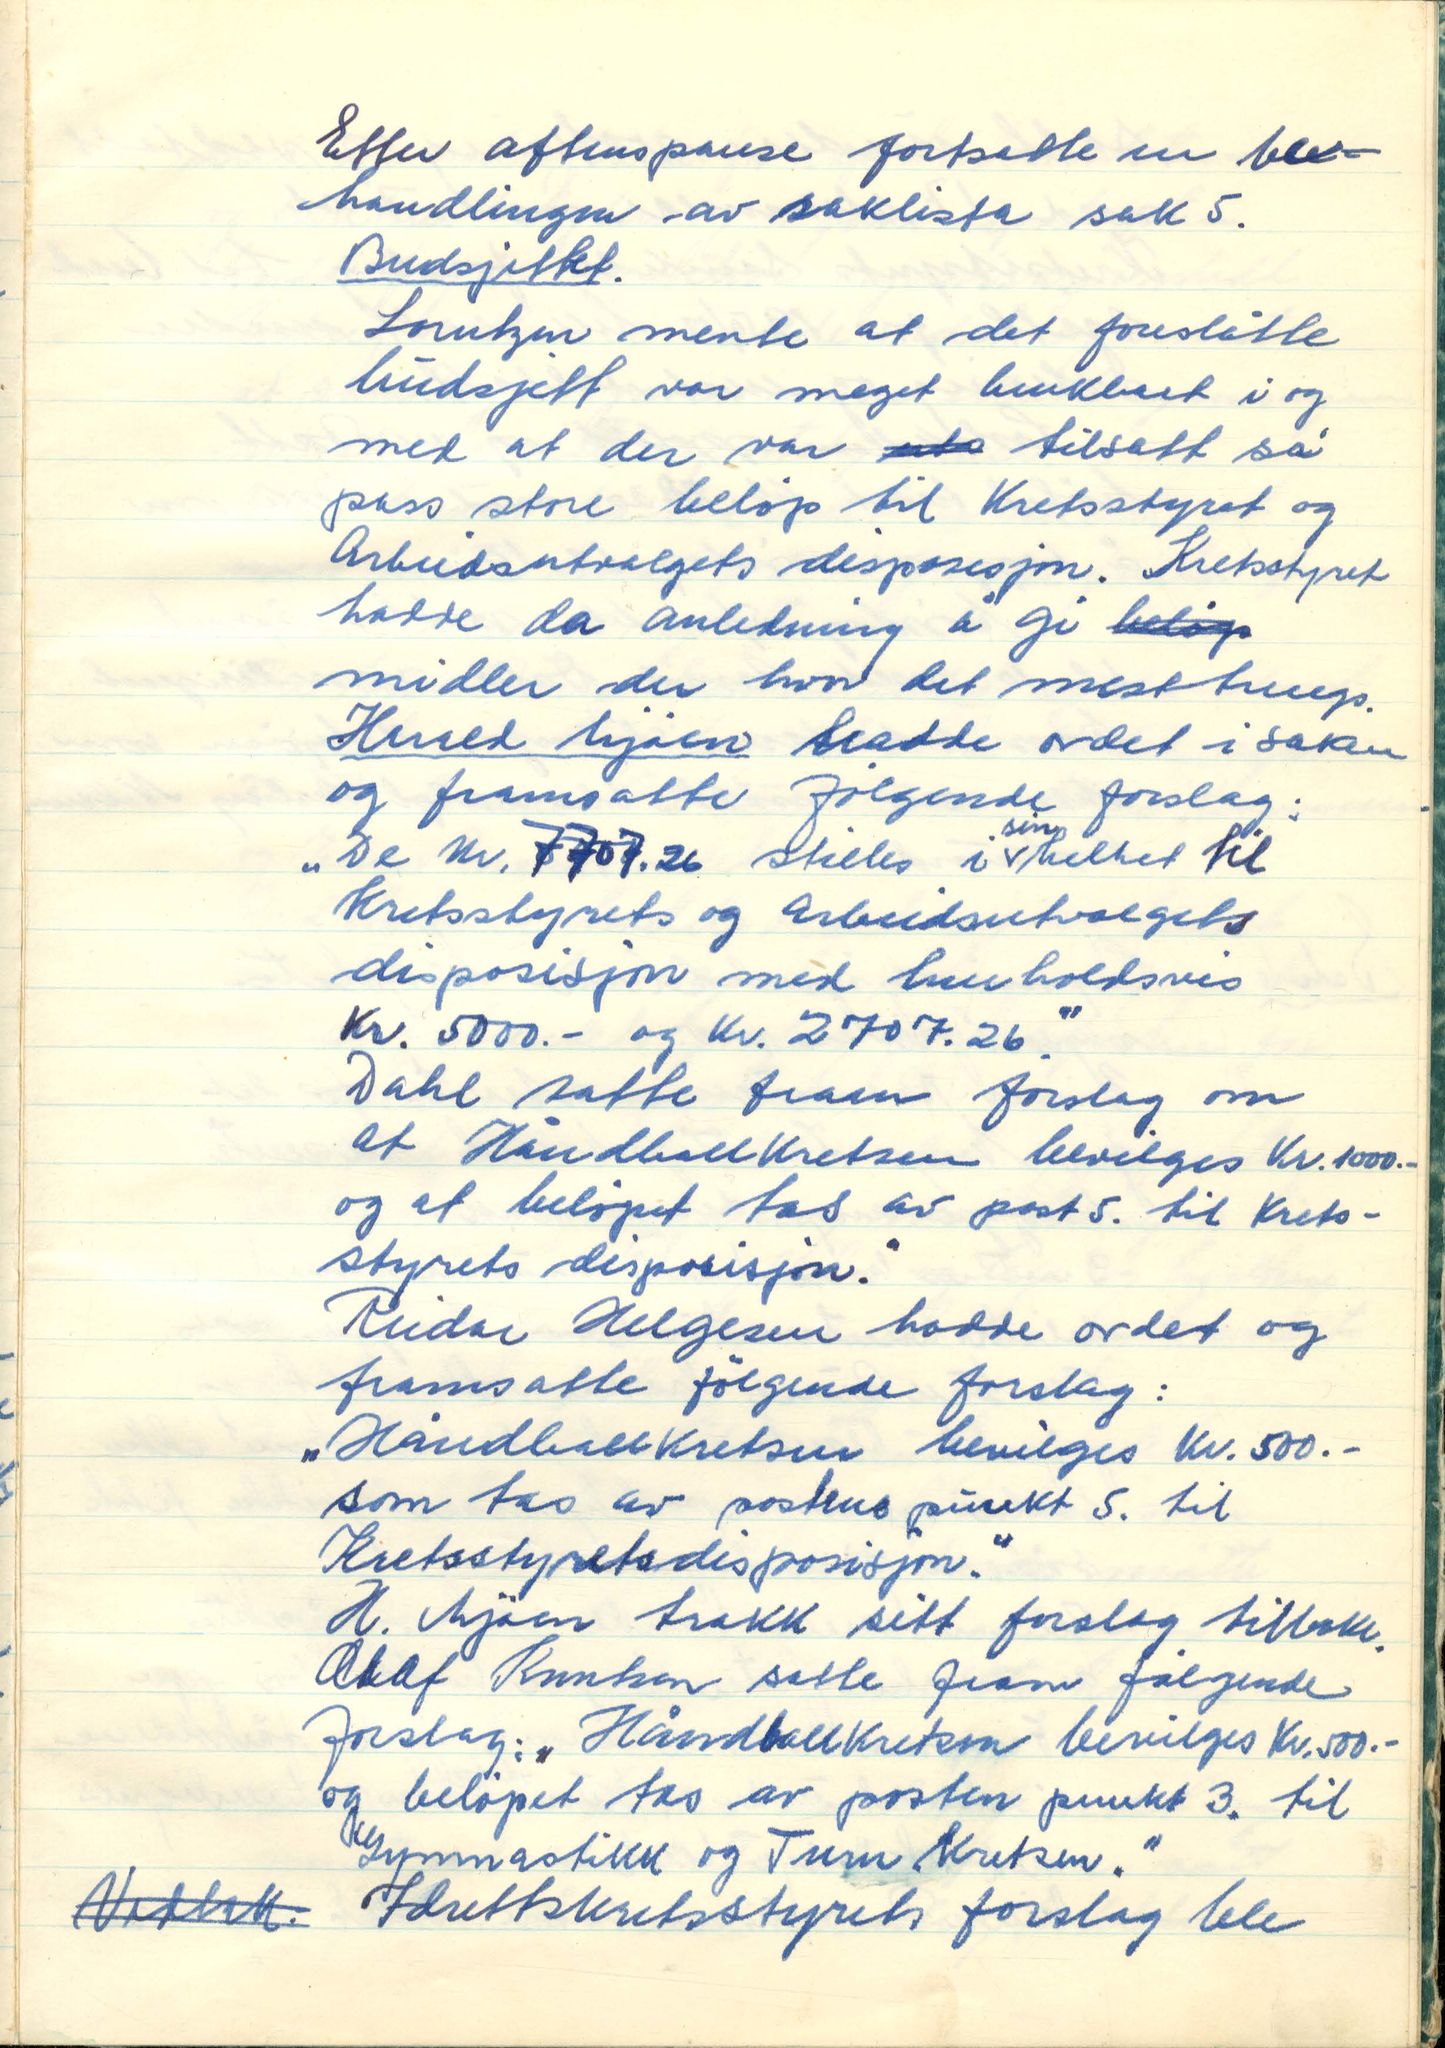 Etter aftenspause fortsatte en be-
handlingen av saklista sak 5.
Budsjettet.
Lorntzen mente at det foreslåtte
budsjett var meget brukbart i og
med at der var tilsatt så
pass store beløp til Kretsstyret og
Arbeidsutvalgets disposisjon. Kretsstyret
hadde da anledning å gi beløp
midler der hvor det mest trengs.
Harald Mjøen hadde ordet i saken
og framsatte følgende forslag:
„De Kr. 7707.26 stilles i sin helhet til
Kretsstyrets og Arbeidsutvalgets
disposisjon med henholdsvis
Kr. 5000.- og Kr. 2707.26."
Dahl satte fram forslag om
at Håndballkretsen bevilges Kr. 1000.-
og at beløpet tas av post 5. til Krets-
styrets disposisjon."
Reidar Helgesen hadde ordet og
framsatte følgende forslag:
„Håndballkretsen bevilges Kr. 500.-
som tas av postens punkt 5. til
Kretsstyrets disposisjon."
H. Mjøen trakk sitt forslag tilbake.
Olaf Knutsen satte fram følgende
forslag: „Håndballkretsen bevilges Kr. 500.-
og beløpet tas av posten punkt 3. til
Gymnastikk og Turn Kretsen."
Vedtak. Idrettskretsstyrets forslag ble